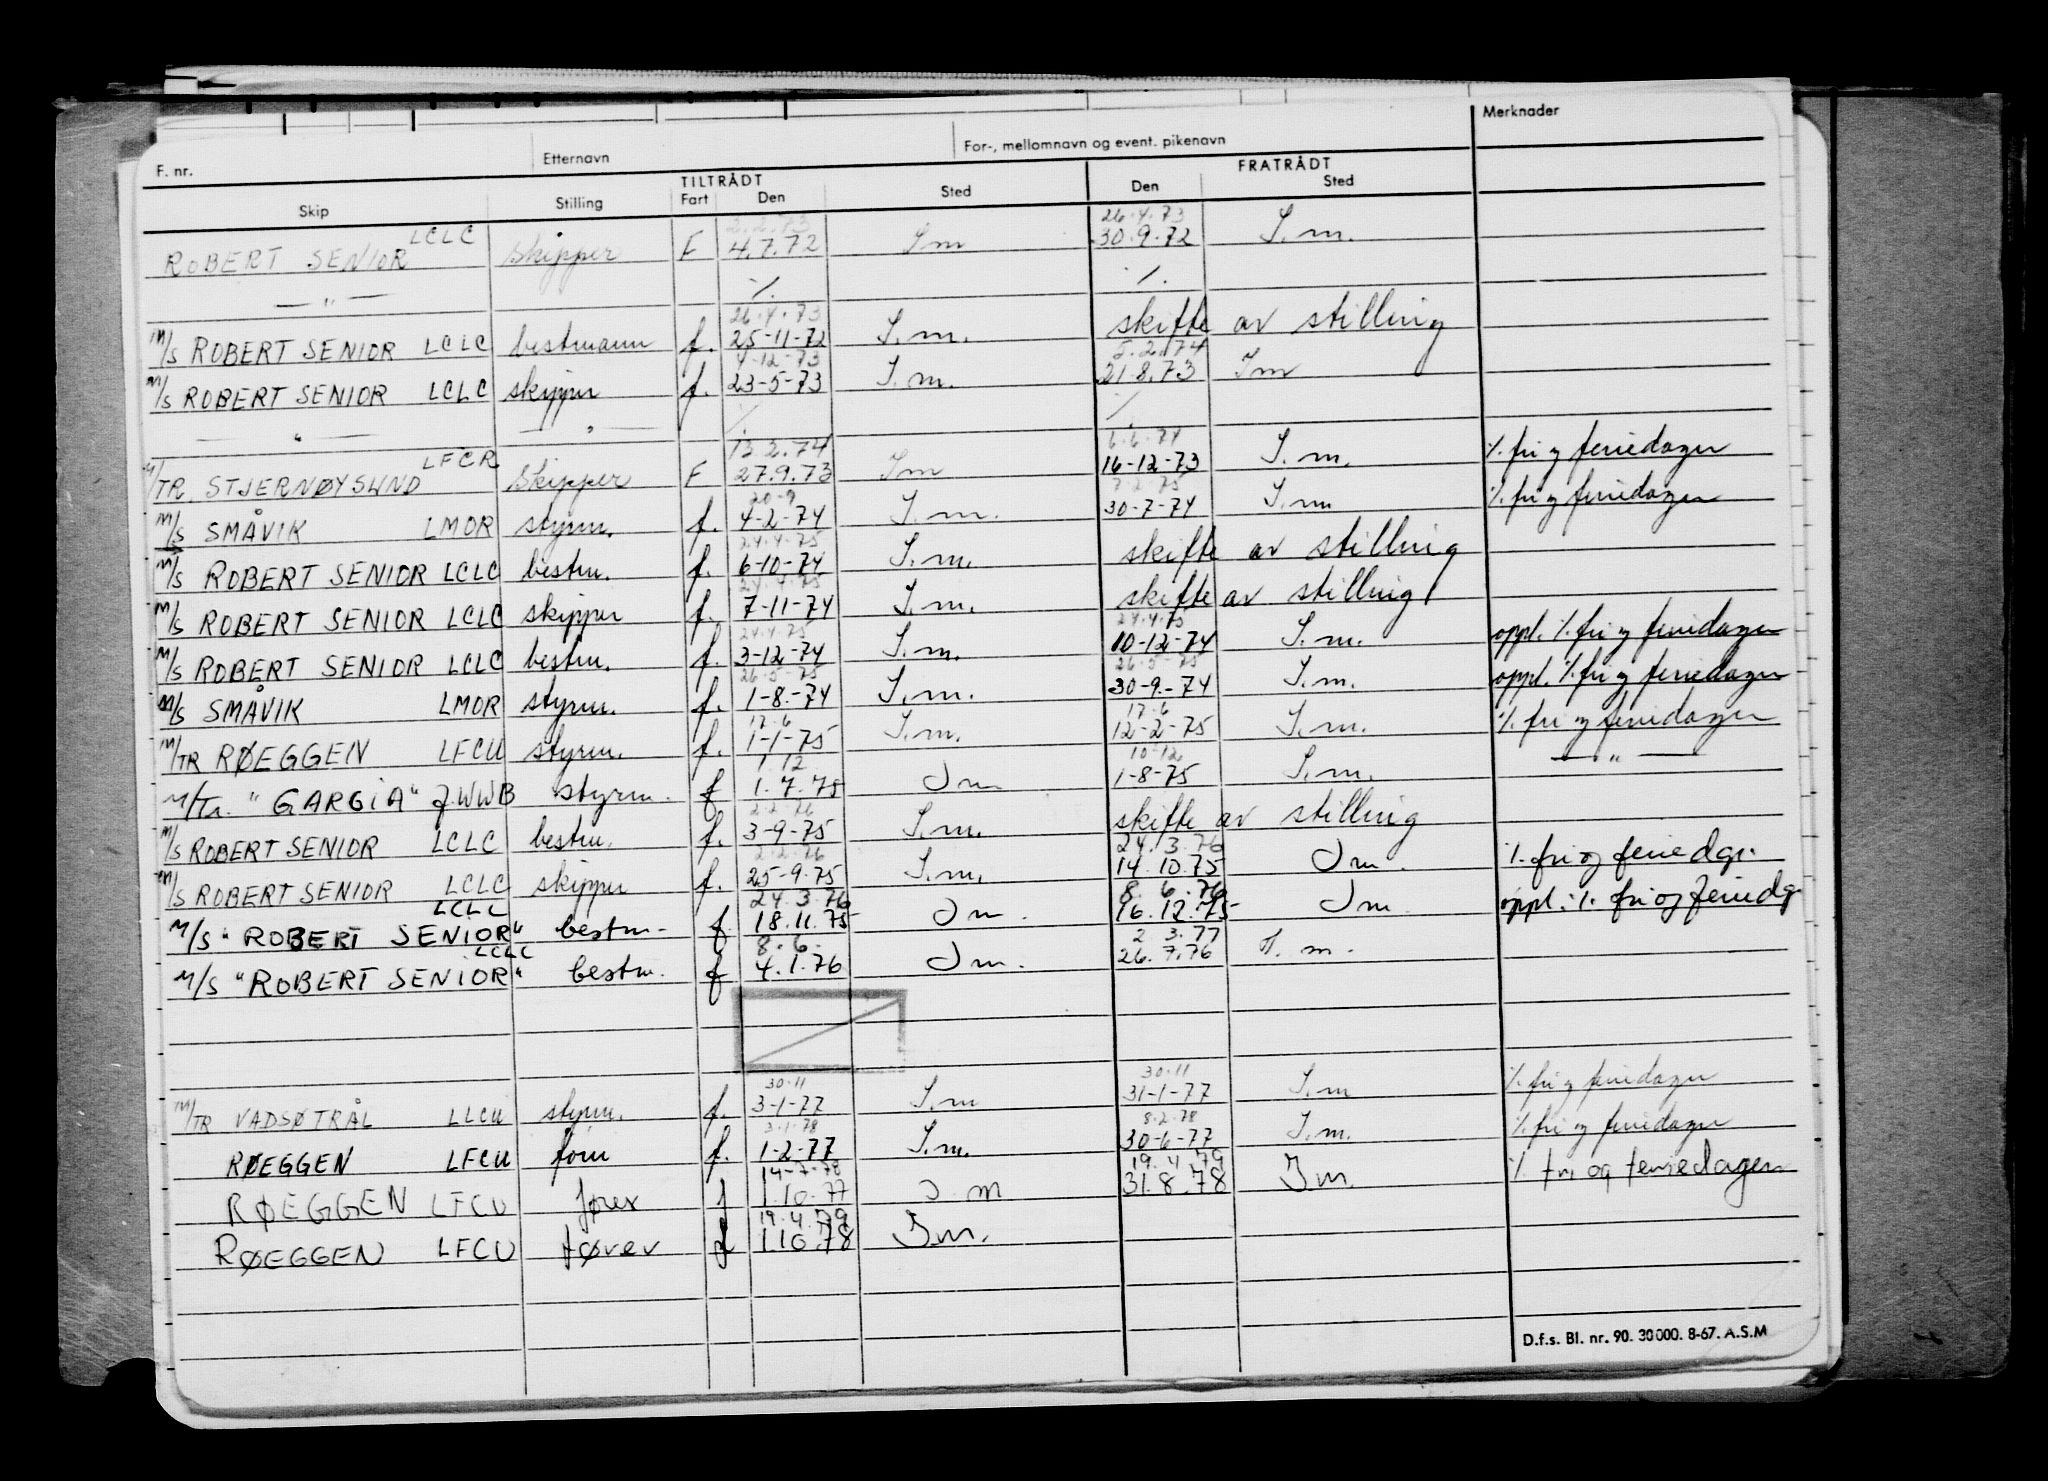 Merknader
F. nr. Etternavn For-, mellomnavn og event. pikenavn
TILTRÅDT FRATRÅDT
Skip Stilling Fart Den Sted Den Sted
2.2.73 26.4.73
ROBERT SENIOR LCLC skipper F 4.7.72 Im 30.9.72 I.m.
— " — ./. ./.
26.4.73
M/S ROBERT SENIOR LCLC bestmann f. 25-11-72 I.m. skifte av stilling
4-12-73 5.2.74
M/S ROBERT SENIOR LCLC skipper f. 23-5-73 I.m. 21.8.73 Im
— " — — " — ./. ./.
13.2.74 6.6.74
M/TR. STJERNØYSUND LFCR Skipper F 27.9.73 Im 16-12-73 I.m. ./. fri og feriedager
20-9 7-2-75
M/S SMÅVIK LMOR styrm. f. 4-2-74 I.m. 30-7-74 I.m ./. fri og feriedager
24.4.75
M/S ROBERT SENIOR LCLC bestm. f. 6-10-74 I.m. skifte av stilling
24.4.75
M/S ROBERT SENIOR LCLC skipper f. 7-11-74 I.m. skifte av stilling
24.4.75 24.4.75
M/S ROBERT SENIOR LCLC bestm. f. 3-12-74 I.m. 10-12-74 I.m. oppl. ./. fri og feriedager
26.5.75 26.5.75
M/S SMÅVIK LMOR styrm. f. 1-8.-74 I.m. 30-9.-74 I.m. oppl. ./. fri og feriedager
17.6 17.6
M/TR RØEGGEN LFCU styrm. f. 1-1-75 I.m. 12-2-75 I.m. ./. fri og feriedager
1.12 10-12
M/Tr. "GARGIA" JWWB styrm. f 1.7.75 Im 1-8-75 I.m. — " —
2.2.76
M/S ROBERT SENIOR LCLC bestm. f. 3-9-75 I.m. skifte av stilling
2.2.76 24.3.76
M/S ROBERT SENIOR LCLC skipper f. 25-9.75 I.m. 14.10.75 Im. ./. fri og feriedgr.
24.3.76 8.6.76
M/S "ROBERT SENIOR" LCLC bestm. f 18.11.75 Im. 16.12.75 Im. oppl. ./. fri og feriedg.
8.6. 2.3.77
M/S "ROBERT SENIOR" LCLC bestm. f 4.1.76 Im. 26.7.76 I.m.
30.11 30.11
M/TR VADSØTRÅL LLCU styrm. f. 3-1-77 I.m 31-1-77 I.m ./. fri og feriedager
3.1.78 8.2.78
RØEGGEN LFCU förer f. 1-2-77 I.m. 30-6-77 I.m. ./. fri og feriedager
14-7-78 19.4.79
RØEGGEN LFCU fører f 1.10.77 I m 31.8.78 Im. ./. fri og feriedager
19.4.79
RØEGGEN LFCU fører f 1.10.78 I.m.
D.f.s. Bl. nr. 90. 30000. 8-67. A.S.M